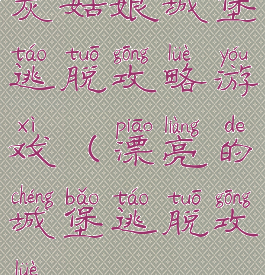 灰姑娘城堡
táo tuō gōng luè yóu
逃脱攻略游
xì piāo liàng de
戏（漂亮的
chéng bǎo táo tuō gōng
城堡逃脱攻
luè